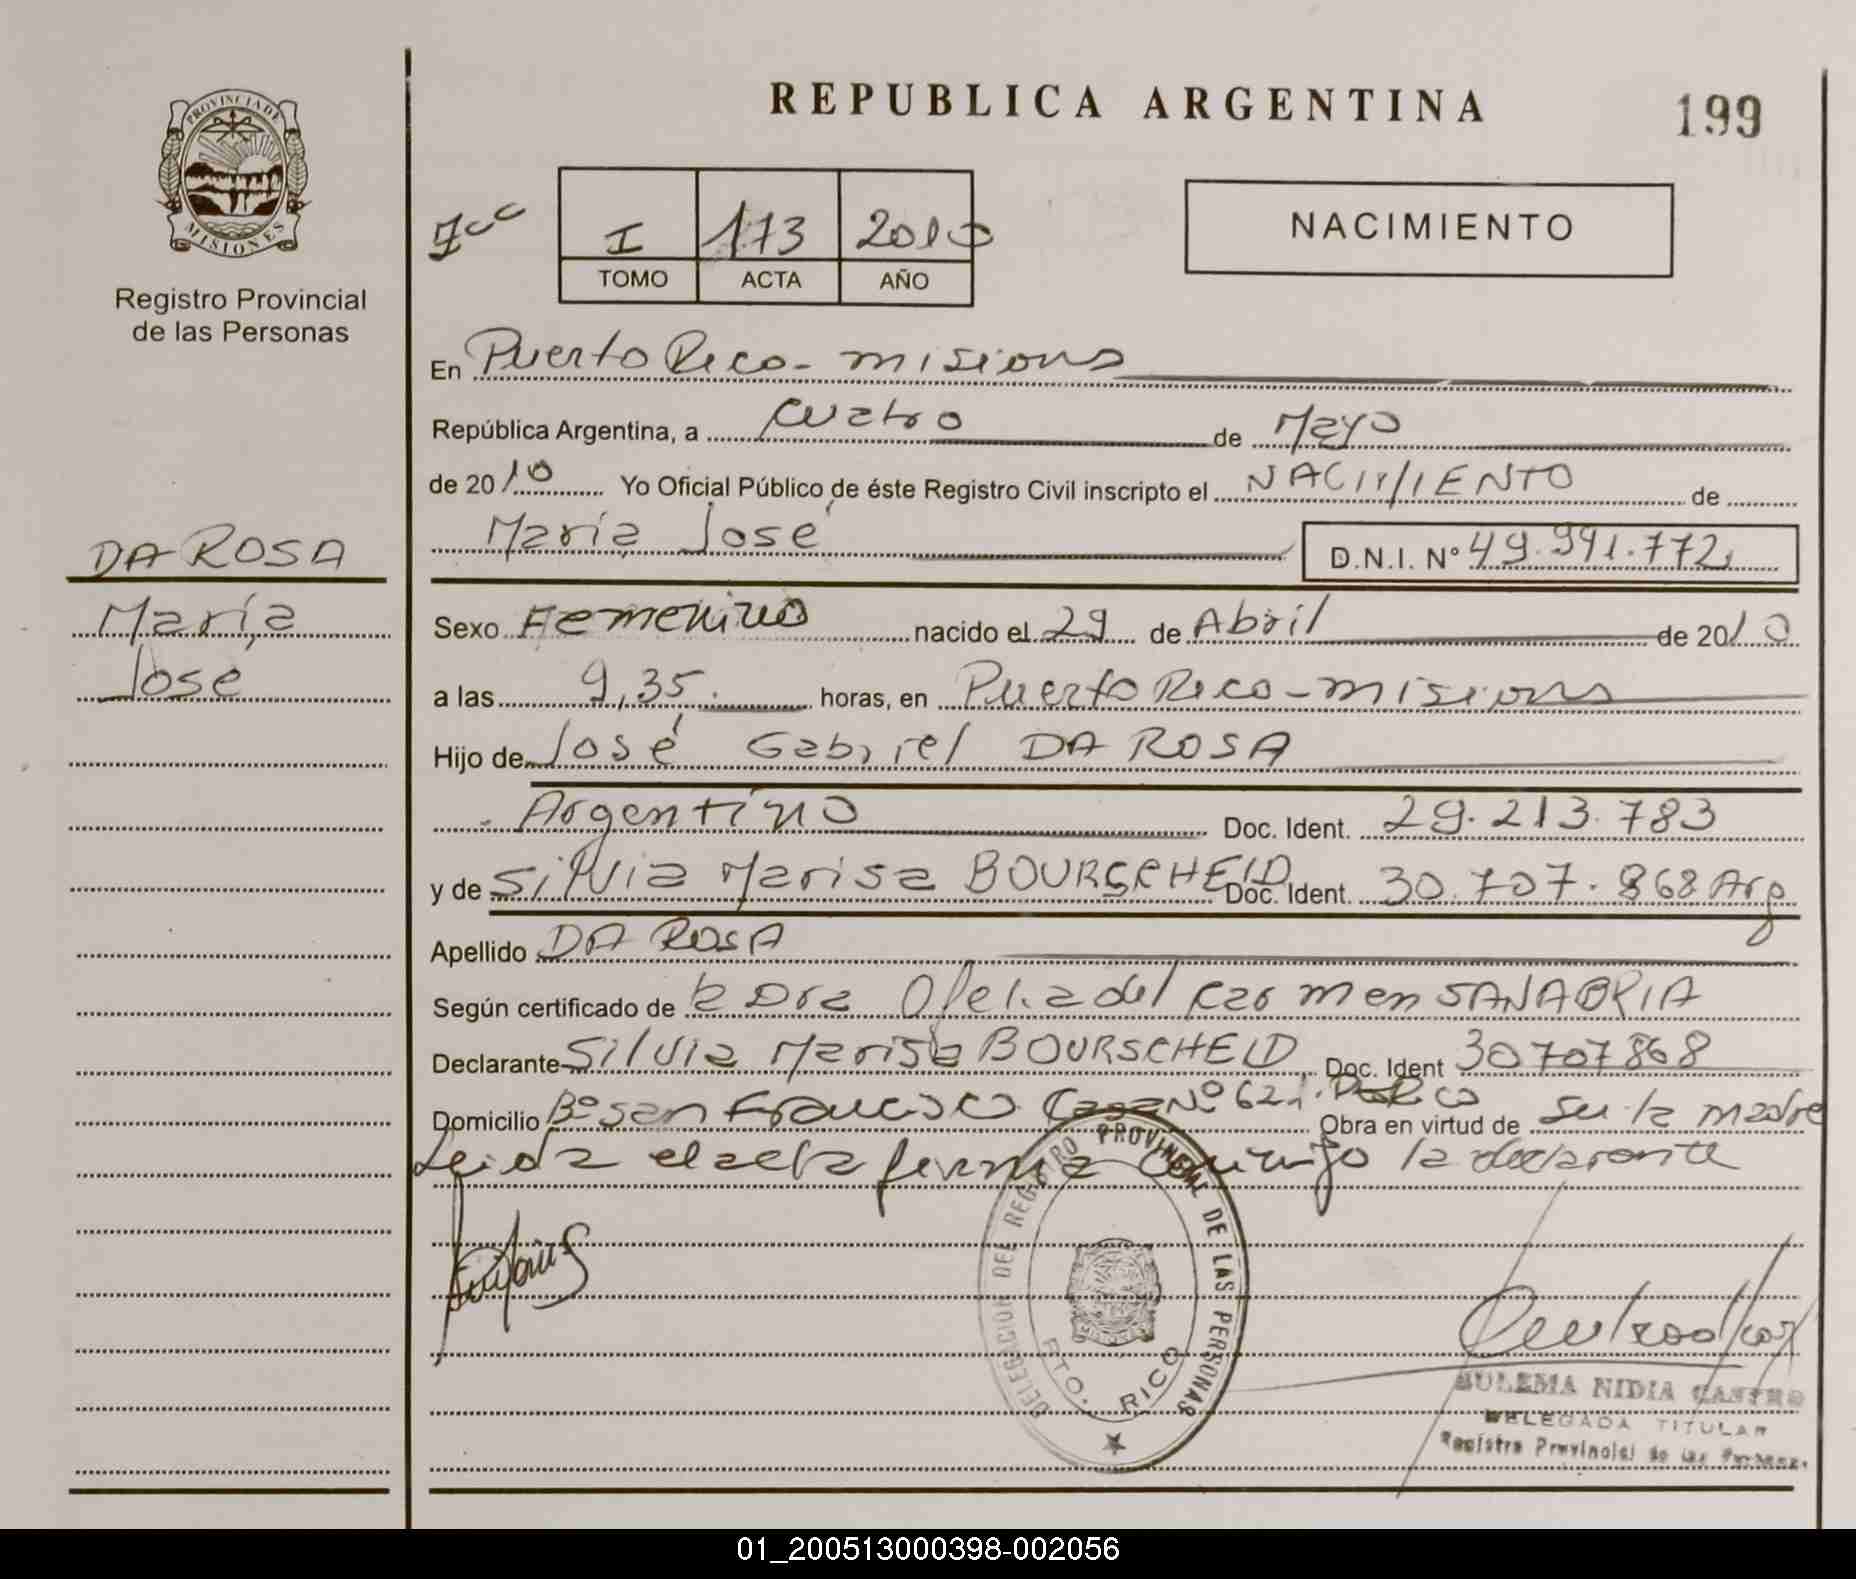 REPUBLICA ARGENTINA
199
PROVINCIA DE
MISIONES
Registro Provincial
de las Personas
I 173 2010
TOMO ACTA AÑO
NACIMIENTO
En Puerto Rico - misiones
República Argentina, a cuatro de Mayo
de 2010 Yo Oficial Público de éste Registro Civil inscripto el NACIMIENTO de
María José D.N.I. Nº 49.991.772
DA ROSA
María
José
Sexo Femenino nacido el 29 de Abril de 2010
a las 9,35. horas, en Puerto Rico - misiones
Hijo de José Gabriel DA ROSA
Argentino Doc. Ident. 29.213.783
y de Silvia Marisa BOURSCHEID Doc. Ident. 30.707.868 Arg
Apellido DA ROSA
Según certificado de la Dra Ofelia del Carmen SANABRIA
Declarante Silvia Marisa BOURSCHEID Doc. Ident 30707868
Domicilio Bº San Francisco Casa Nº 621. Pto Rico Obra en virtud de ser la madre
Leida el acta firma conmigo la declarante
DELEGACION DEL REGISTRO PROVINCIAL DE LAS PERSONAS
PTO. RICO
SULEMA NIDIA CASTRO
DELEGADA TITULAR
Registro Provincial de las Personas
01_200513000398-002056